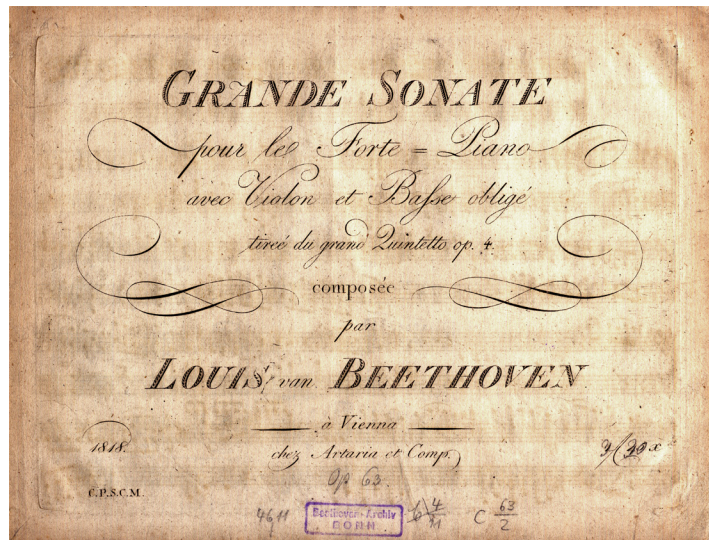 GRANDE SONATE
pour le Forte = Piano
avec Violon et Basse obligé
tireé du grand Quintetto op. 4.
composée
par
LOUIS van BEETHOVEN
à Vienna
1818. chez Artaria et Comp.
Op 63.
C.P.S.C.M.
4611
Beethoven-Archiv
BONN
C 63/2